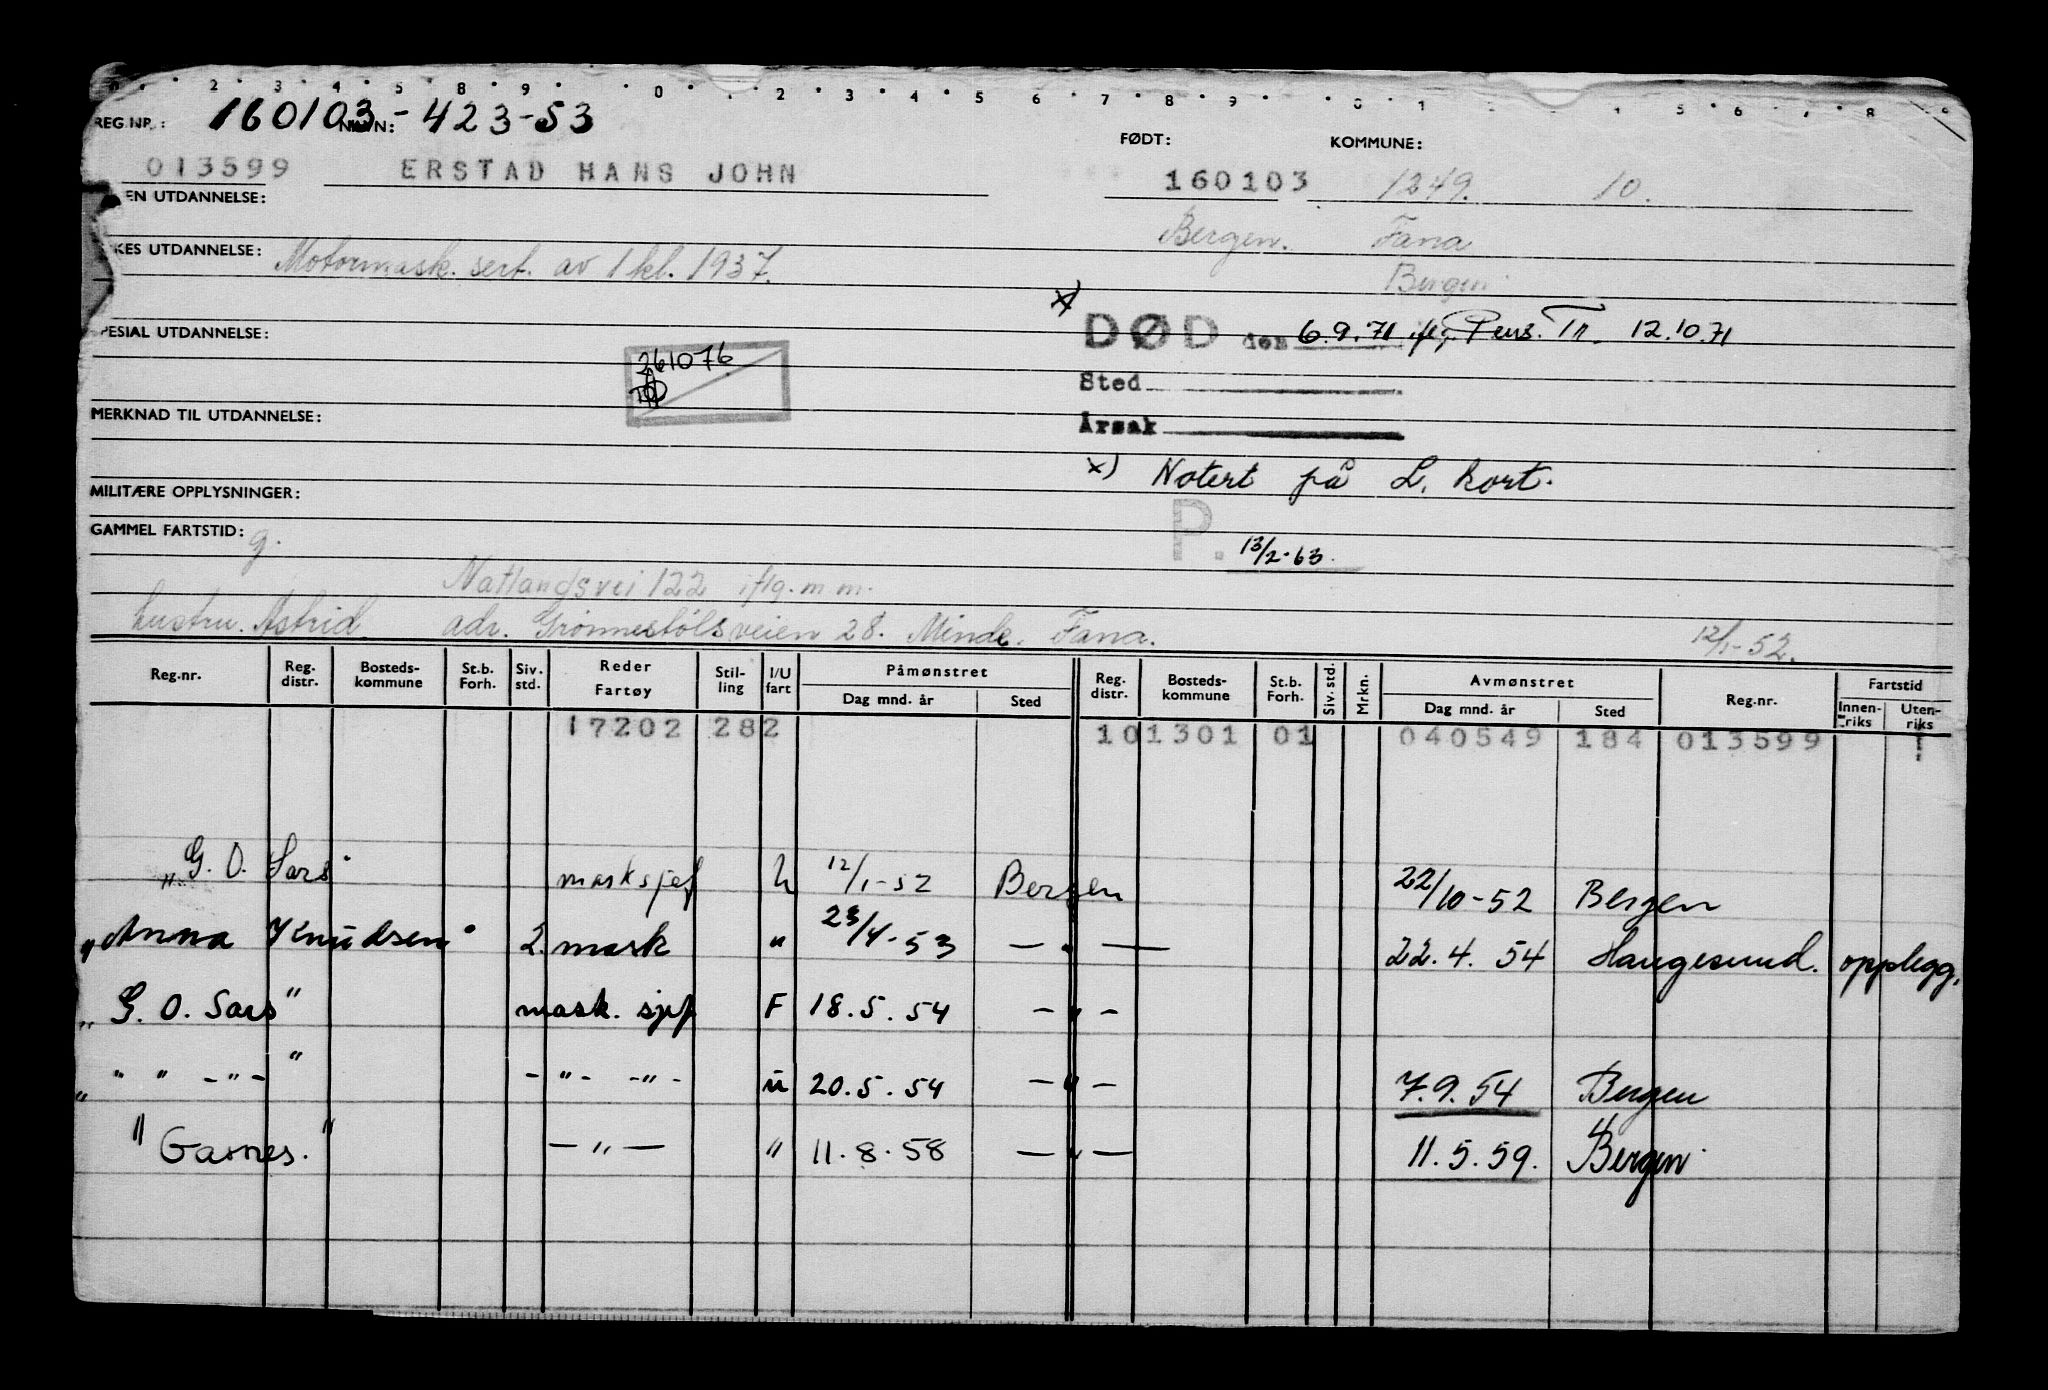 REG.NR.: 160103-423-53 NAVN:
FØDT: KOMMUNE:
013599 ERSTAD HANS JOHN 160103 1249. 10.
EN UTDANNELSE:
Bergen. Fana
KES UTDANNELSE: Motormask. sert. av 1 kl. 1937.
Bergen
x)
DØD den 6.9.71 ifg. Pens. Tr. 12.10.71
PESIAL UTDANNELSE:
261076
Sted
MERKNAD TIL UTDANNELSE:
Årsak
x) Notert på L. kort.
MILITÆRE OPPLYSNINGER:
GAMMEL FARTSTID: g.
P. 13/2-63.
Natlandsvei 122 iflg. m.m.
hustru. Astrid adr. Grønnestølsveien 28. Minde. Fana. 12/1-52.
Reg.nr. Reg. distr. Bosteds- kommune St.b. Forh. Siv. std. Reder Fartøy Stil- ling I/U fart Påmønstret Dag mnd. år Sted Reg. distr. Bosteds- kommune St.b. Forh. Siv. std. Mrkn. Avmønstret Dag mnd. år Sted Reg.nr. Fartstid Innen- riks Uten- riks
17202 282 101301 01 040549 184 013599
"G. O. Sars" masksjef U 12/1-52 Bergen 22/10-52 Bergen
"Anna Knudsen" 2. mask " 23/4-53 — " — 22.4.54 Haugesund. opplegg.
"G. O. Sars" mask. sjef F 18.5.54 — " —
" " " - " - " - " - - " - u 20.5.54 — " — 7.9.54 Bergen
"Garnes." — " — " 11.8.58 — " — 11.5.59. Bergen